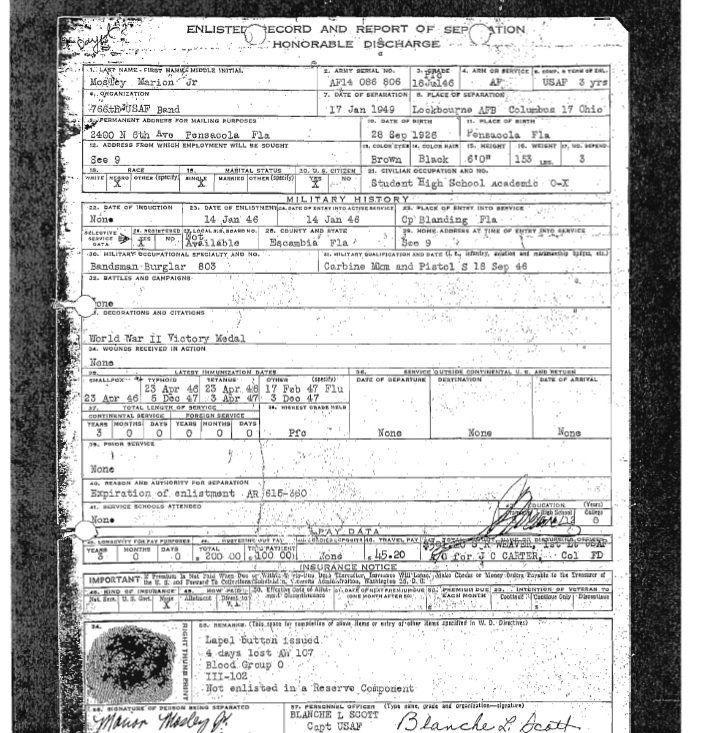 ENLISTED RECORD AND REPORT OF SEPARATION
HONORABLE DISCHARGE
1. LAST NAME - FIRST NAME - MIDDLE INITIAL 2. ARMY SERIAL NO. 3. GRADE 4. ARM OR SERVICE 5. COMP. & TERM OF ENL.
Mosley Marion Jr AF14 086 806 18Jul46 AF USAF 3 yrs
6. ORGANIZATION 7. DATE OF SEPARATION 8. PLACE OF SEPARATION
766th USAF Band 17 Jan 1949 Lockbourne AFB Columbus 17 Ohio
9. PERMANENT ADDRESS FOR MAILING PURPOSES 10. DATE OF BIRTH 11. PLACE OF BIRTH
2400 N 6th Ave Pensacola Fla 28 Sep 1926 Pensacola Fla
12. ADDRESS FROM WHICH EMPLOYMENT WILL BE SOUGHT 13. COLOR EYES 14. COLOR HAIR 15. HEIGHT 16. WEIGHT 17. NO. DEPEND.
See 9 Brown Black 6'0" 153 LBS. 3
18. RACE 19. MARITAL STATUS 20. U.S. CITIZEN 21. CIVILIAN OCCUPATION AND NO.
WHITE NEGRO OTHER (specify) SINGLE MARRIED OTHER (specify) YES NO Student High School Academic O-X
X X X
MILITARY HISTORY
22. DATE OF INDUCTION 23. DATE OF ENLISTMENT 24. DATE OF ENTRY INTO ACTIVE SERVICE 25. PLACE OF ENTRY INTO SERVICE
None 14 Jan 46 14 Jan 46 Cp Blanding Fla
SELECTIVE SERVICE DATA 26. REGISTERED 27. LOCAL S.S. BOARD NO. 28. COUNTY AND STATE 29. HOME ADDRESS AT TIME OF ENTRY INTO SERVICE
YES NO Not
X Available Escambia Fla See 9
30. MILITARY OCCUPATIONAL SPECIALTY AND NO. 31. MILITARY QUALIFICATION AND DATE (i.e., infantry, aviation and marksmanship badges, etc.)
Bandsman Burglar 803 Carbine Mkm and Pistol S 18 Sep 46
32. BATTLES AND CAMPAIGNS
one
33. DECORATIONS AND CITATIONS
World War II Victory Medal
34. WOUNDS RECEIVED IN ACTION
None
35. LATEST IMMUNIZATION DATES 36. SERVICE OUTSIDE CONTINENTAL U.S. AND RETURN
SMALLPOX TYPHOID TETANUS OTHER (specify) DATE OF DEPARTURE DESTINATION DATE OF ARRIVAL
23 Apr 46 23 Apr 46 17 Feb 47 Flu
23 Apr 46 5 Dec 47 3 Apr 47 3 Dec 47
37. TOTAL LENGTH OF SERVICE 38. HIGHEST GRADE HELD
CONTINENTAL SERVICE FOREIGN SERVICE
YEARS MONTHS DAYS YEARS MONTHS DAYS
3 0 0 0 0 0 Pfc None None None
39. PRIOR SERVICE
None
40. REASON AND AUTHORITY FOR SEPARATION
Expiration of enlistment AR 615-360
41. SERVICE SCHOOLS ATTENDED 42. EDUCATION (Years)
None High School College
0
PAY DATA
43. LONGEVITY FOR PAY PURPOSES 44. MUSTERING OUT PAY 46. TRAVEL PAY
YEARS MONTHS DAYS TOTAL THIS PAYMENT J R WEAVER, 1st Lt USAF
3 0 0 $ 200.00 $ 100.00 None $ 45.20 for J C CARTER, Col FD
INSURANCE NOTICE
IMPORTANT
48. KIND OF INSURANCE 49. HOW PAID 52. PREMIUM DUE EACH MONTH 53. INTENTION OF VETERAN TO
Nat. Serv. U.S. Govt. None Allotment Direct to V.A. Continue Continue Only Discontinue
X $ $
54. RIGHT THUMB PRINT 55. REMARKS (This space for completion of above items or entry of other items specified in W. D. Directives)
Lapel button issued
4 days lost AW 107
Blood Group O
III-102
Not enlisted in a Reserve Component
56. SIGNATURE OF PERSON BEING SEPARATED 57. PERSONNEL OFFICER (Type name, grade and organization - signature)
Marion Mosley Jr. BLANCHE L SCOTT Blanche L. Scott
Capt USAF